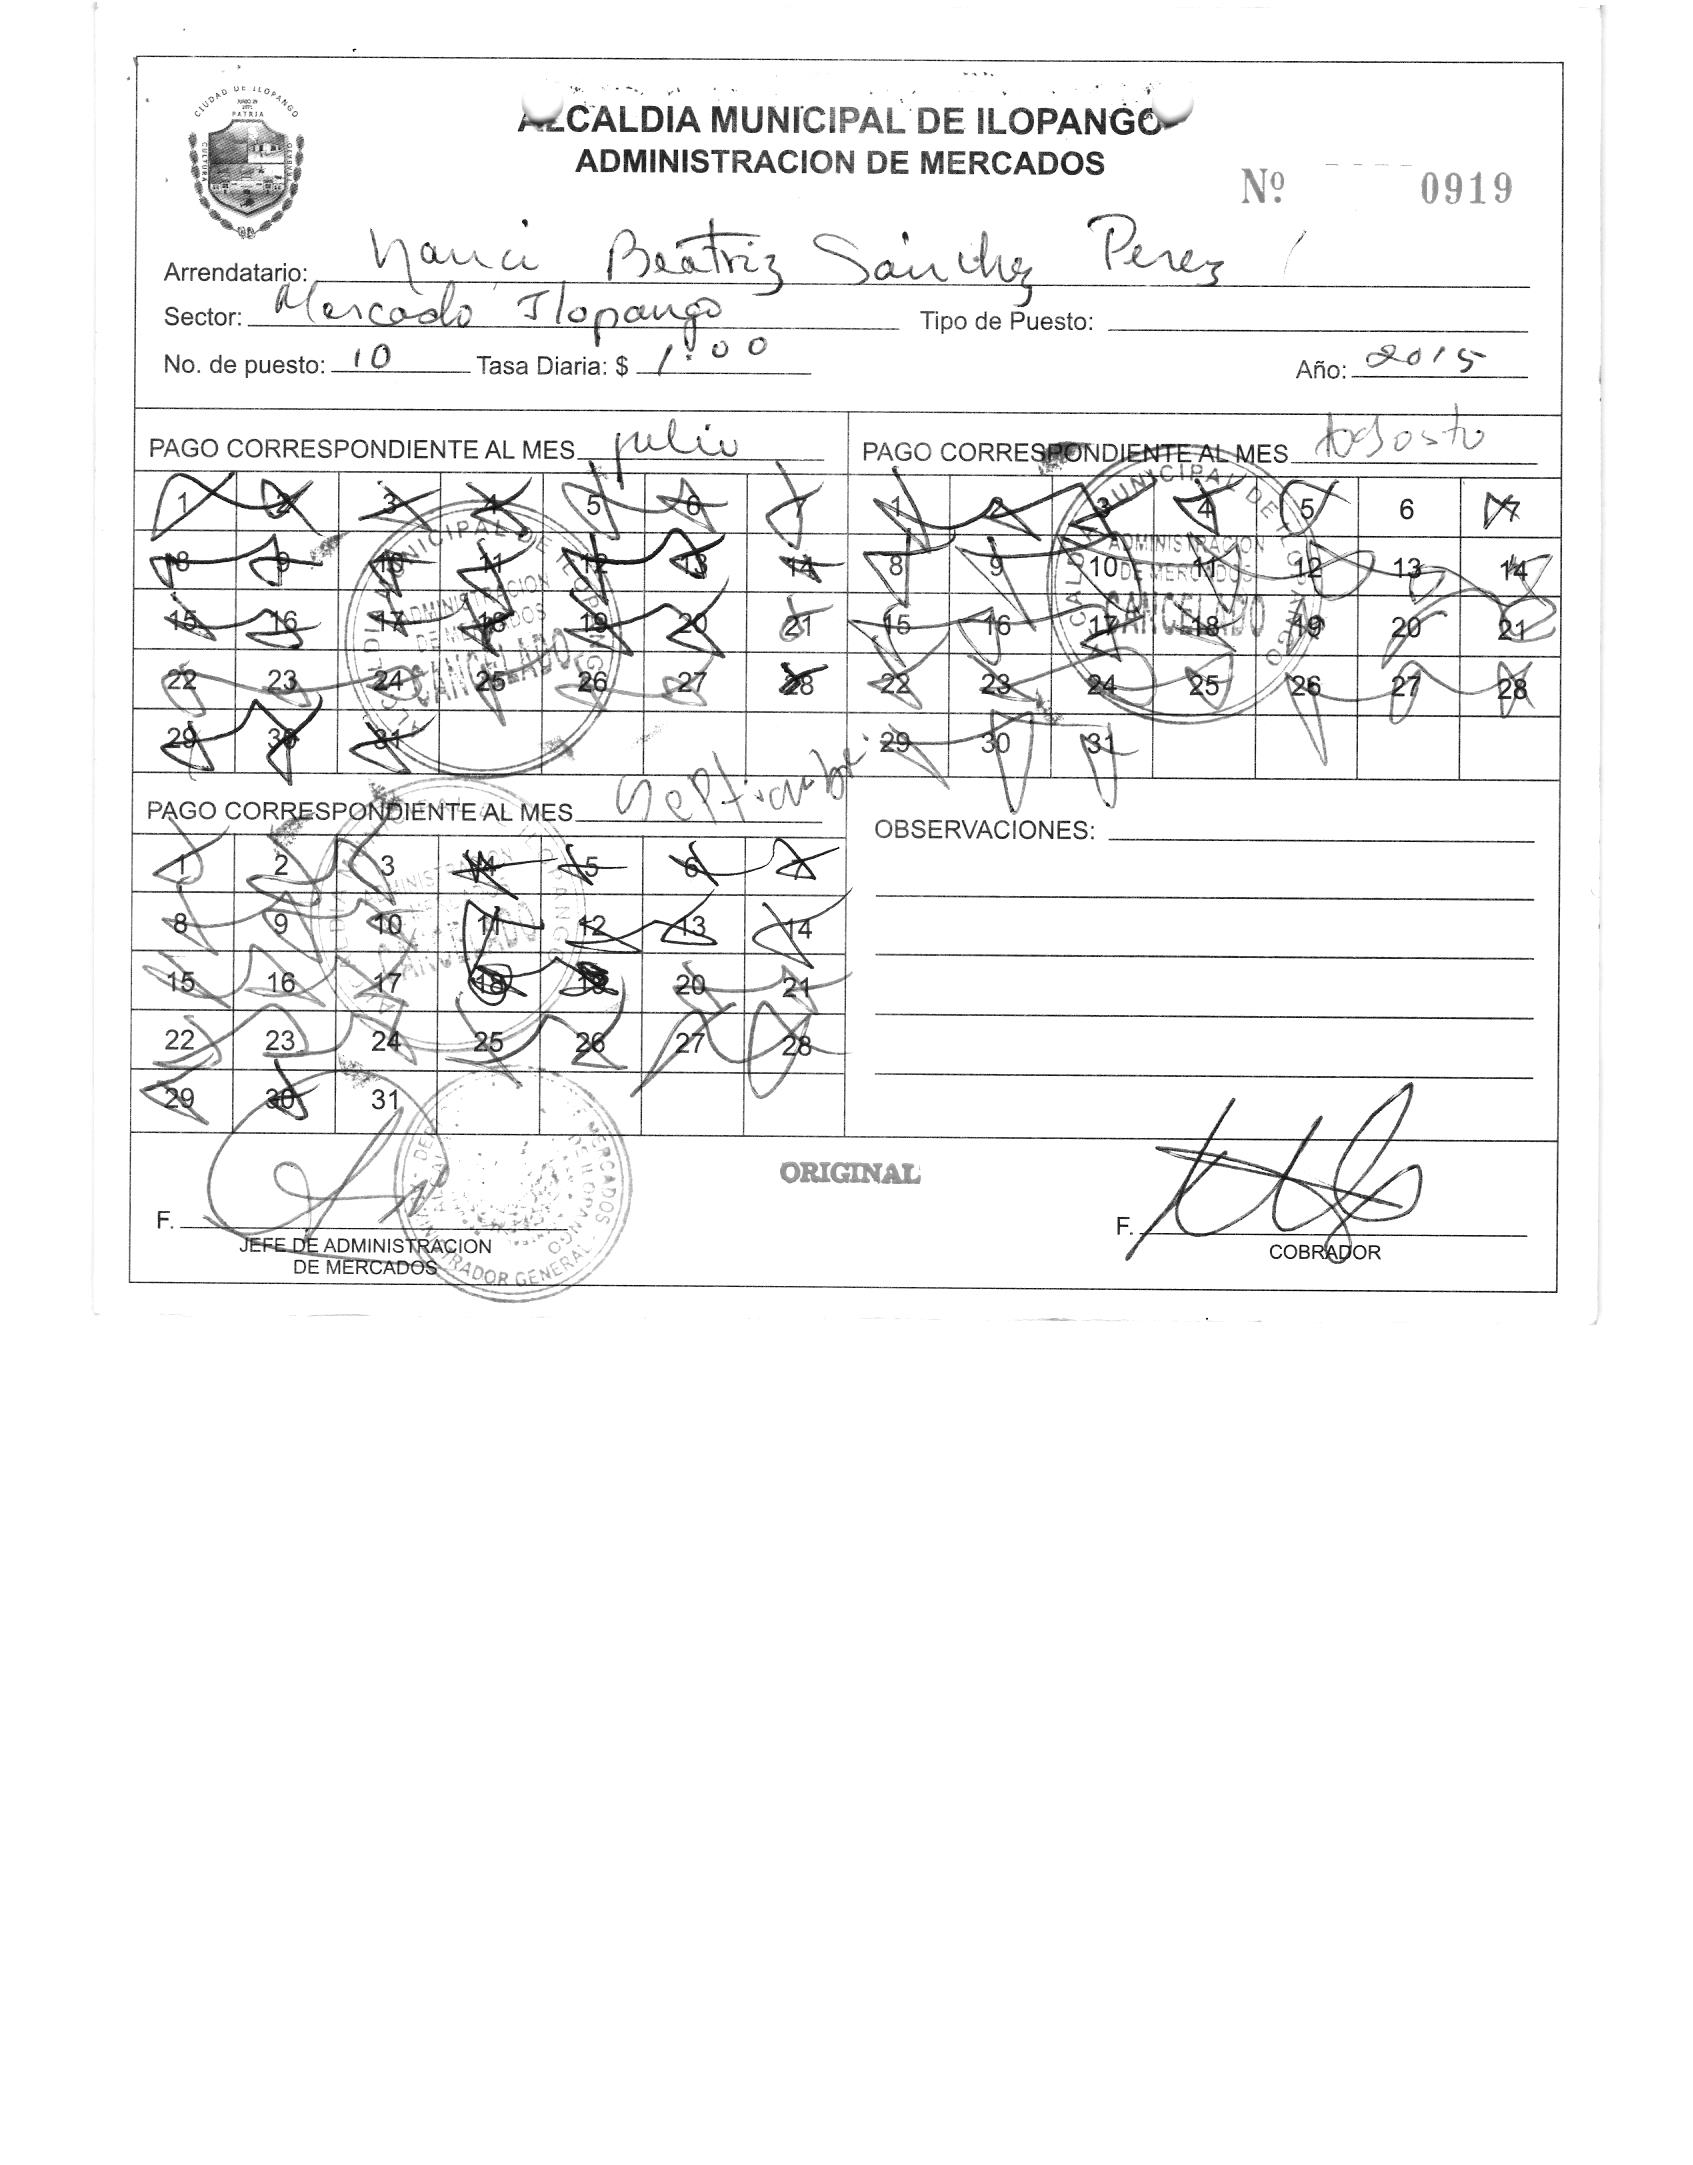 CIUDAD DE ILOPANGO
PATRIA
CULTURA
TRABAJO
ALCALDIA MUNICIPAL DE ILOPANGO
ADMINISTRACION DE MERCADOS
Nº 0919
Arrendatario: Nanci Beatriz Sánchez Perez
Sector: Mercado Ilopango Tipo de Puesto:
No. de puesto: 10 Tasa Diaria: $ 1.00 Año: 2015
PAGO CORRESPONDIENTE AL MES julio
1 2 3 4 5 6 7
8 9 10 11 12 13 14
15 16 17 18 19 20 21
22 23 24 25 26 27 28
29 30 31
ALCALDIA MUNICIPAL DE ILOPANGO
ADMINISTRACION
DE MERCADOS
CANCELADO
PAGO CORRESPONDIENTE AL MES Agosto
1 2 3 4 5 6 7
8 9 10 11 12 13 14
15 16 17 18 19 20 21
22 23 24 25 26 27 28
29 30 31
ALCALDIA MUNICIPAL DE ILOPANGO
ADMINISTRACION
DE MERCADOS
CANCELADO
PAGO CORRESPONDIENTE AL MES Septiembre
1 2 3 4 5 6 7
8 9 10 11 12 13 14
15 16 17 18 19 20 21
22 23 24 25 26 27 28
29 30 31
CANCELADO
OBSERVACIONES:
ORIGINAL
F.
JEFE DE ADMINISTRACION
DE MERCADOS
MERCADOS
ADMINISTRADOR GENERAL
F.
COBRADOR